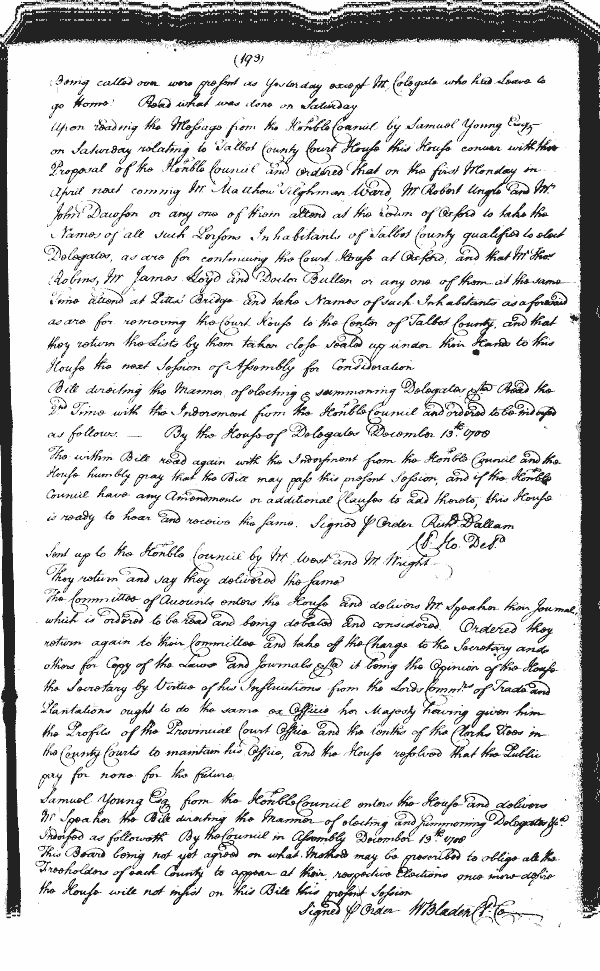 (193)
Being called over were present as Yesterday except Mr. Colegate who had Leave to
go Home. Read what was done on Saturday
Upon reading the Message from the Honble Council by Samuel Young Esqr
on Saturday relating to Talbot County Court House this House concur with the
Proposal of the Honble Council and ordered that on the first Monday in
April next coming Mr. Matthew Tilghman Ward Mr. Robert Ungle and Mr.
John Dawson or any one of them attend at the Town of Oxford to take the
Names of all such Persons Inhabitants of Talbot County qualified to elect
Delegates, as are for continuing the Court House at Oxford, and that Mr. Thos
Robins, Mr. James Lloyd and Doctor Bullen or any one of them at the same
Time attend at Pitts Bridge and take Names of such Inhabitants as aforesaid
as are for removing the Court House to the Center of Talbot County, and that
they return the Lists by them taken close sealed up under their Hands to this
House the next Session of Assembly for Consideration
Bill directing the Manner of electing & summoning Delegates &ca Read the
2nd Time with the Indorsment from the Honble Council and ordered to be indorsed
as follows. — By the House of Delegates December 13th 1708
The within Bill read again with the Indorsment from the Honble Council and the
House humbly pray that the Bill may pass this present Session, and if the Honble
Council have any Amendments or additional Clauses to add thereto, this House
is ready to hear and receive the same. Signed p Order Richd Dallam
Cl. Ho. Deld
Sent up to the Honble Council by Mr. West and Mr. Wright.
They return and say they delivered the same
The Committee of Accounts enters the House and delivers Mr. Speaker their Journal,
which is ordered to be read and being debated and considered. Ordered they
return again to their Committee and take off the Charge to the Secretary and
others for Copy of the Laws and Journals &ca it being the Opinion of the House
the Secretary by Virtue of his Instructions from the Lords Commrs of Trade and
Plantations ought to do the same ex Officio her Majesty having given him
the Profits of the Provincial Court Office and the tenths of the Clerks Fees in
the County Courts to maintain his Office, and the House resolved that the Public
pay for none for the future
Samuel Young Esq from the Honble Council enters the House and delivers
Mr Speaker the Bill directing the Manner of electing and summoning Delegates &ca
Indorsed as followeth. By the Council in Assembly December 13th 1708
This Board being not yet agreed on what Method may be prescribed to oblige all the
Freeholders of each County to appear at their respective Elections once more desire
the House will not insist on this Bill this present Session
Signed p Order W Bladen Cl. Co.